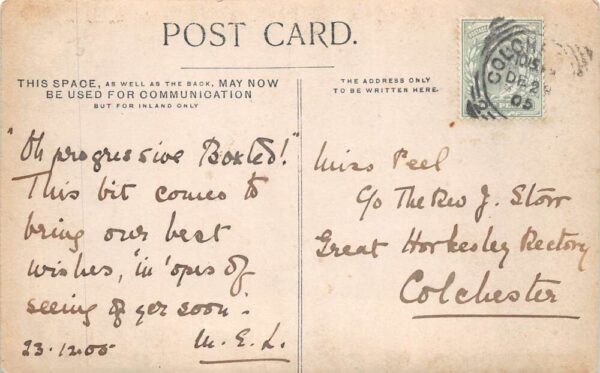 POST CARD.
THIS SPACE, AS WELL AS THE BACK, MAY NOW
BE USED FOR COMMUNICATION
BUT FOR INLAND ONLY
THE ADDRESS ONLY
TO BE WRITTEN HERE.
COLCHE
DE 2
05
"Oh progressive Boxted!"
This bit comes to
bring our best
wishes, 'in 'opes of
seeing of yer soon.'
23.12.05 M.E.L.
Miss Peel
c/o The Rev J. Storr
Great Horkesley Rectory
Colchester